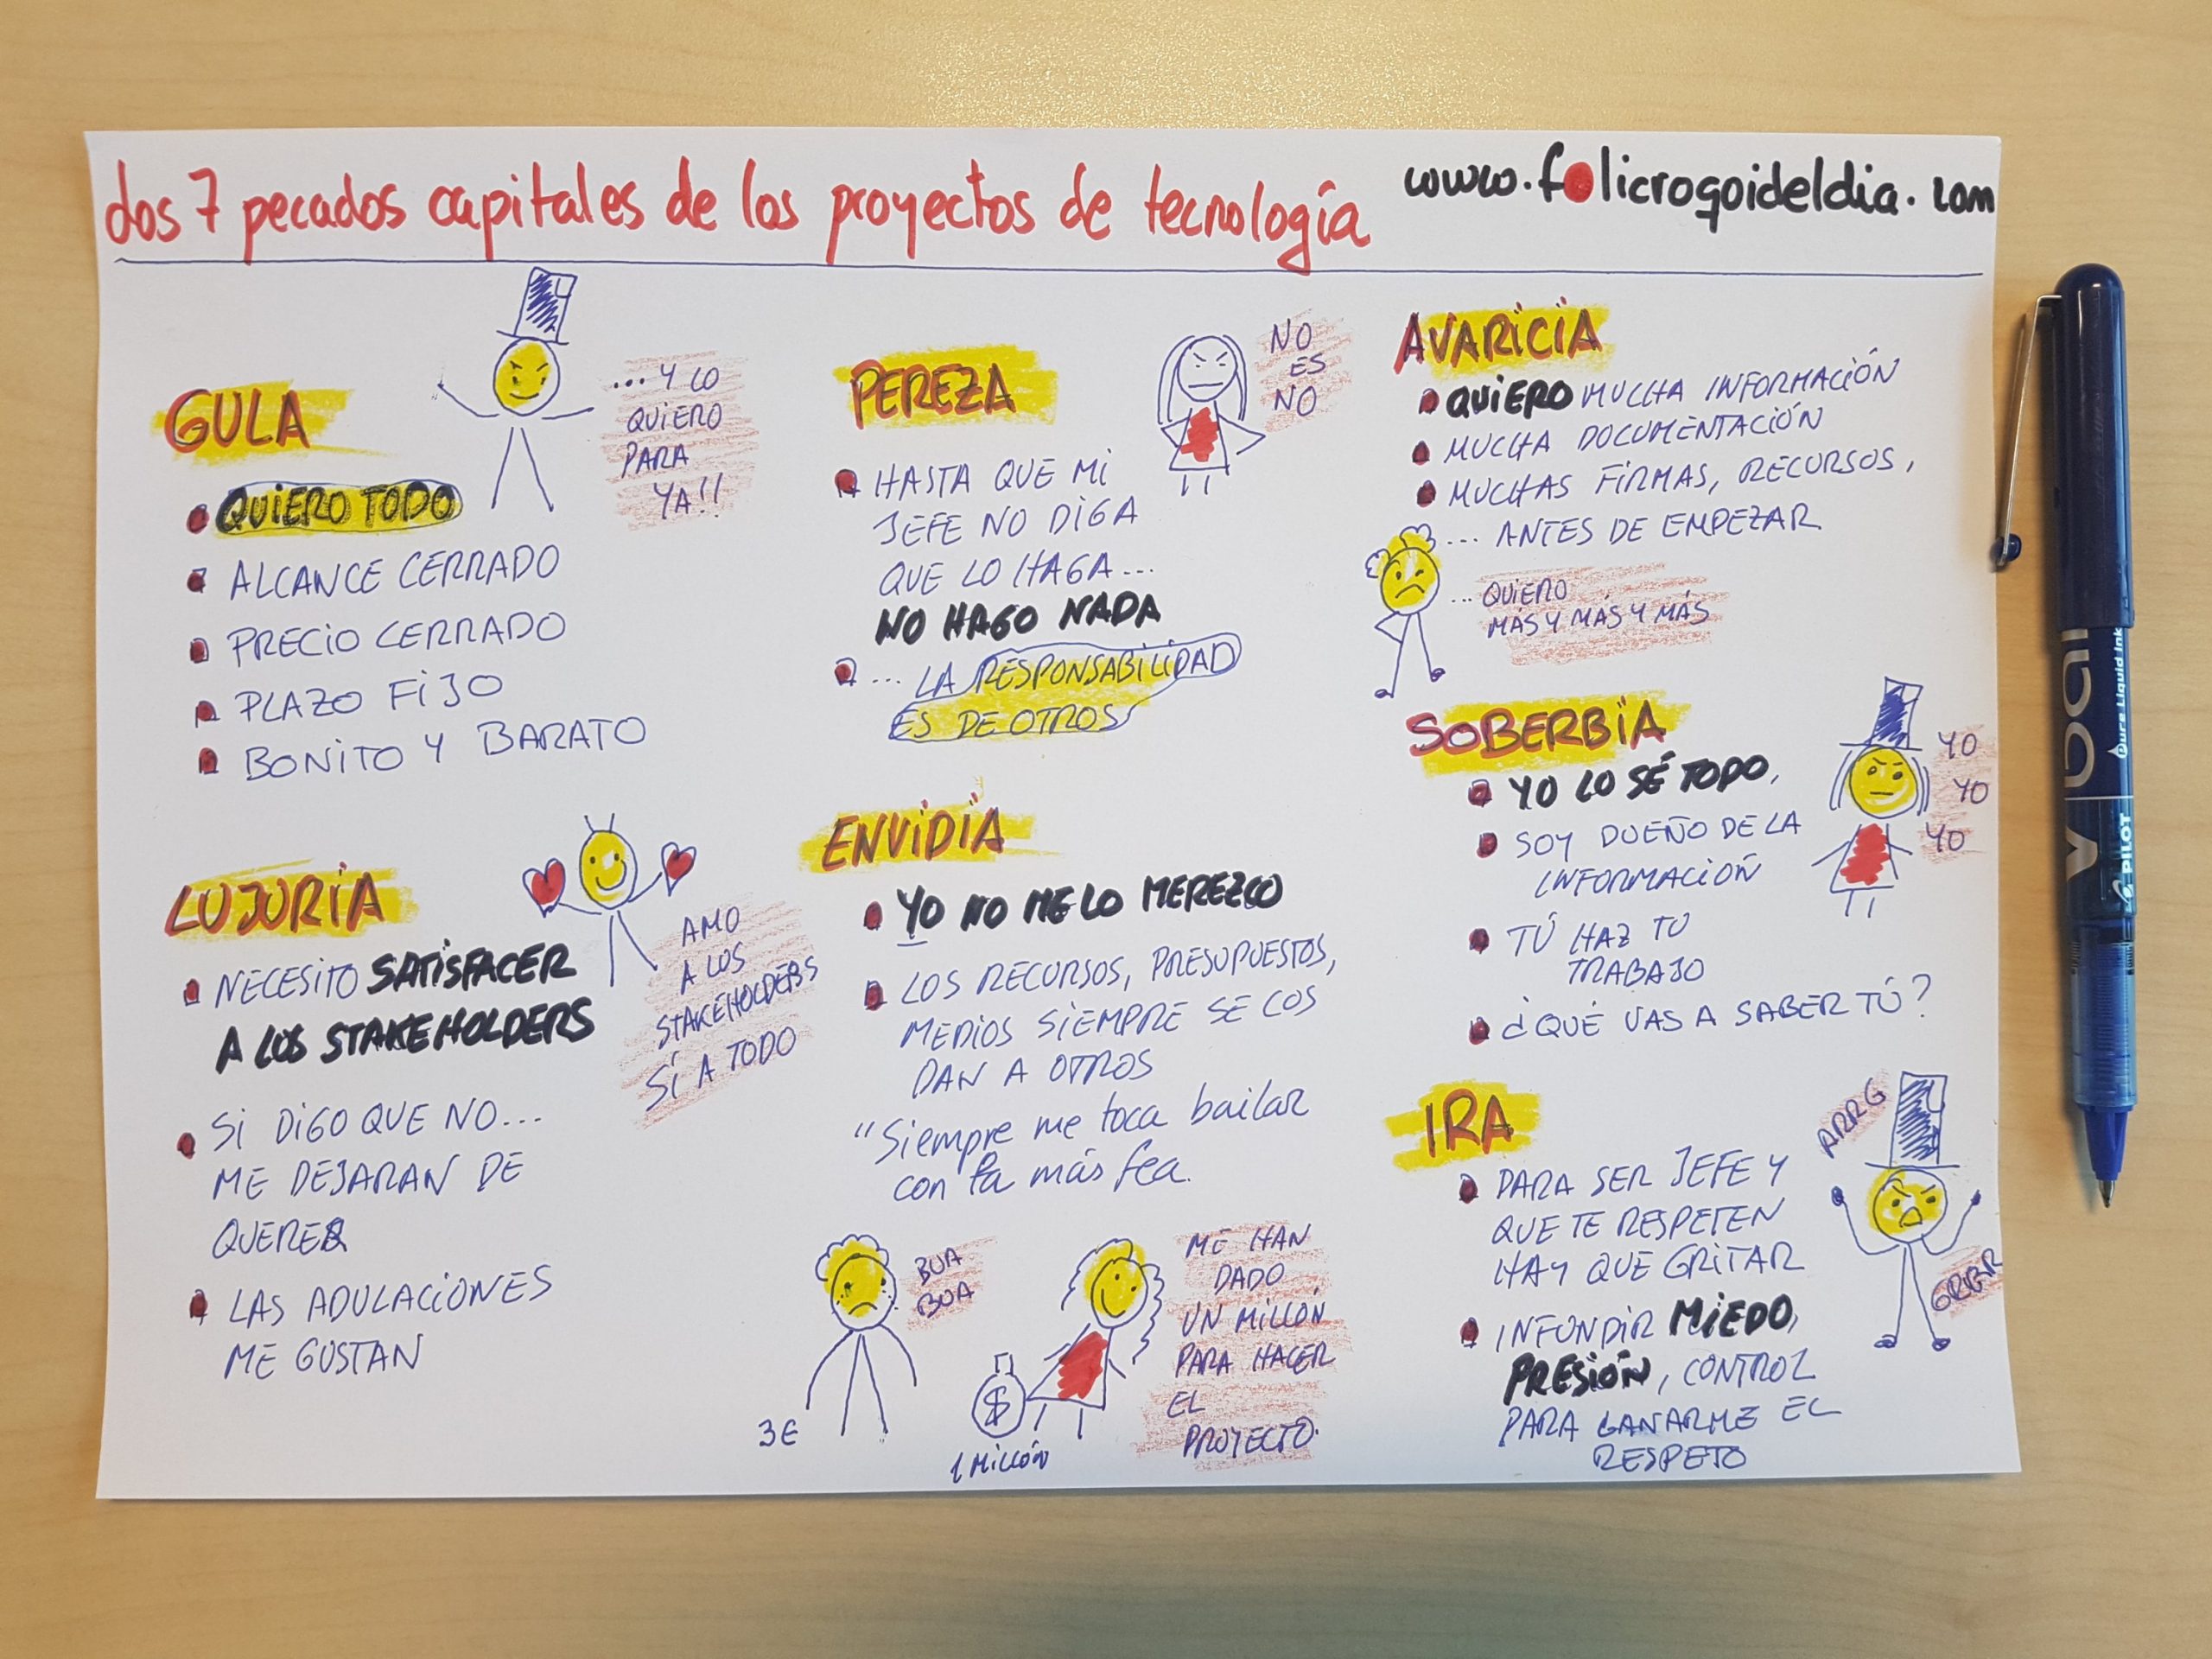 Los 7 pecados capitales de los proyectos de tecnología
www.folicrogoideldia.com
GULA
QUIERO TODO
ALCANCE CERRADO
PRECIO CERRADO
PLAZO FIJO
BONITO Y BARATO
... Y LO
QUIERO
PARA
YA!!
LUJURIA
NECESITO SATISFACER
A LOS STAKEHOLDERS
SI DIGO QUE NO...
ME DEJARAN DE
QUERER
LAS ADULACIONES
ME GUSTAN
AMO
A LOS
STAKEHOLDERS
SÍ A TODO
PEREZA
HASTA QUE MI
JEFE NO DIGA
QUE LO HAGA...
NO HAGO NADA
... LA RESPONSABILIDAD
ES DE OTROS
NO
ES
NO
ENVIDIA
YO NO ME LO MEREZCO
LOS RECURSOS, PRESUPUESTOS,
MEDIOS SIEMPRE SE LOS
DAN A OTROS
"Siempre me toca bailar
con la más fea.
BUA
BUA
3€
1 MILLÓN
ME HAN
DADO
UN MILLÓN
PARA HACER
EL
PROYECTO.
AVARICIA
QUIERO MUCHA INFORMACIÓN
MUCHA DOCUMENTACIÓN
MUCHAS FIRMAS, RECURSOS,
... ANTES DE EMPEZAR
... QUIERO
MÁS Y MÁS Y MÁS
SOBERBIA
YO LO SÉ TODO,
SOY DUEÑO DE LA
INFORMACIÓN
TÚ HAZ TU
TRABAJO
¿QUÉ VAS A SABER TÚ?
YO
YO
YO
IRA
PARA SER JEFE Y
QUE TE RESPETEN
HAY QUE GRITAR
INFUNDIR MIEDO,
PRESIÓN, CONTROL
PARA GANARME EL
RESPETO
ARRG
GRRR
V ball
Pure Liquid Ink
PILOT